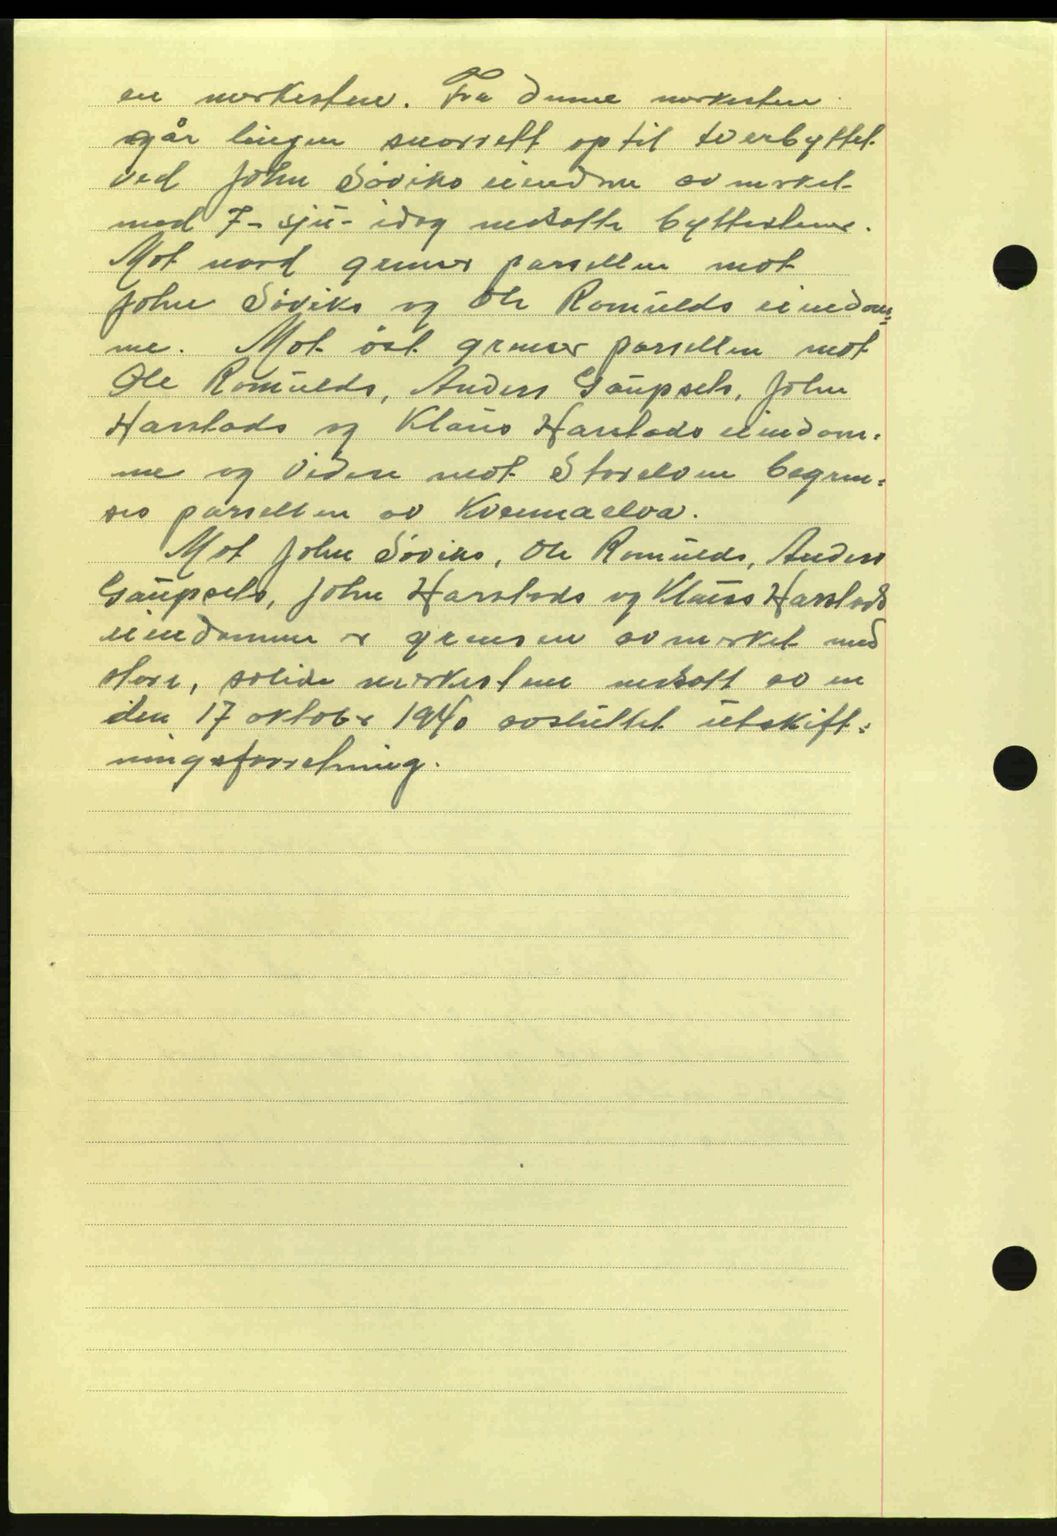 en merkesten. Fra denne merkesten
går linjen snorrett op til tverbyttet
ved John Søviks eiendom avmerket
med 7- sju- idag nedsatte byttestener.
Mot nord grenser parsellen mot
John Søviks og Ole Romulds eiendom=
me. Mot øst grenser parsellen mot
Ole Romulds, Anders Gaupsets, John
Harstads og Klaus Harstads eiendom=
me og videre mot Storelven begren=
ses parsellen av Kvennaelva.
Mot John Søviks, Ole Romulds, Anders
Gaupsets, John Harstads og Klaus Harstads
eiendomme er grensen avmerket med
store, solide merkestener nedsatt av en
den 17 oktober 1940 avsluttet utskift=
ningsforretning.